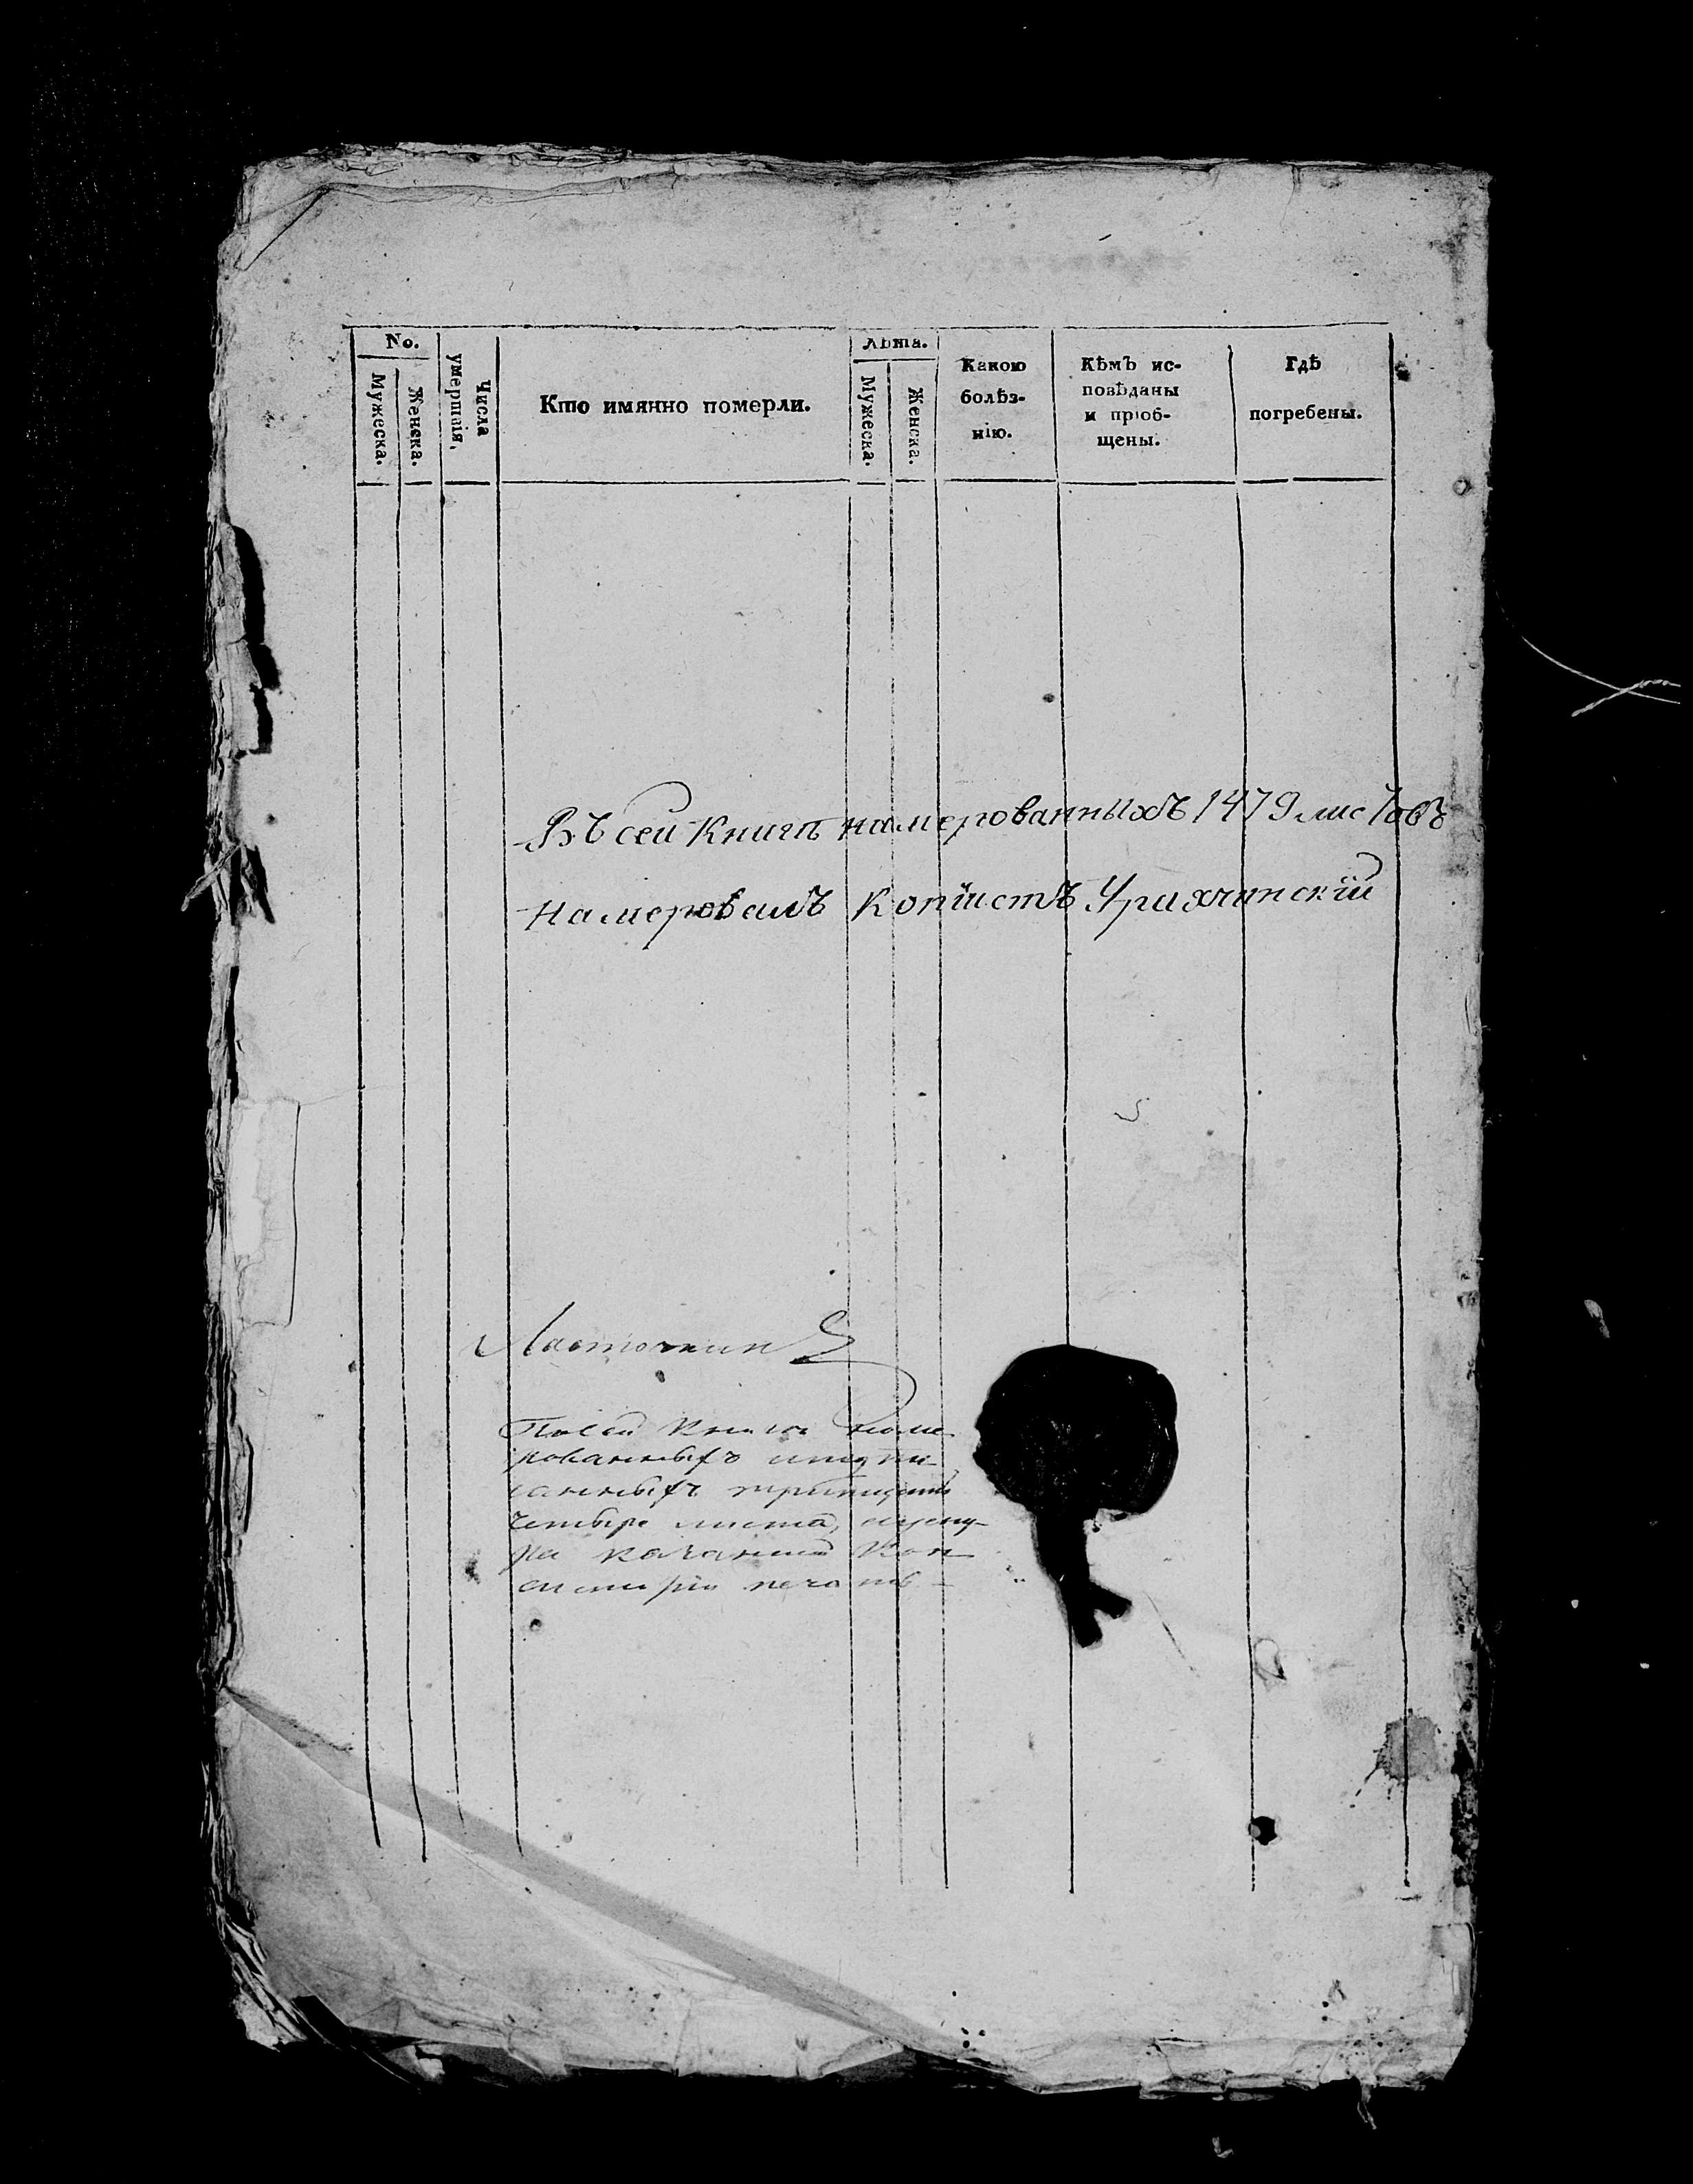 No.
Мужеска.
Женска.
Числа
умершія,
Кто имянно померли.
Лѣта.
Мужеска.
Женска.
Какою
болѣз-
нію.
Кѣмъ ис-
повѣданы
и пріоб-
щены.
Гдѣ
погребены.
Въ сей Книгѣ намерованныхъ 1479 листовъ
намеровалъ Копіистъ
Ласточкинъ
По сей Книге номе-
рованныхъ
санныхъ тритцать
Четыре листа,
Кон-
систоріи печать